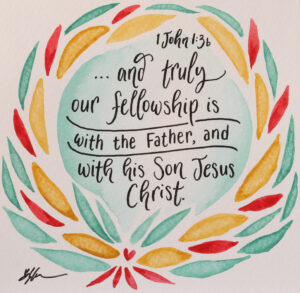 1 John 1:3b
... and truly
our fellowship is
with the Father, and
with his Son Jesus
Christ.